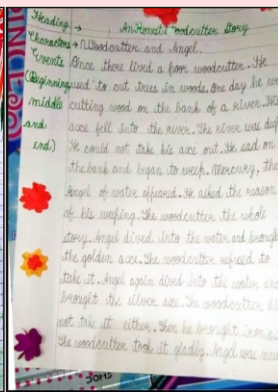 Heading → An Honest Woodcutter Story
Characters → Woodcutter and Angel.
Events Once there lived a poor woodcutter. He
(Beginning used to cut trees in woods. One day he was
middle cutting wood on the bank of a river. His
and axe fell into the river. The river was deep
end) He could not take his axe out. He sad on
the bank and began to weep. Mercury, the
Angel of water appeared. He asked the reason
of his weeping. The woodcutter the whole
story. Angel dived into the water and brought
the golden axe. The woodcutter refused to
take it. Angel again dived into the water and
brought the silver axe. The woodcutter did
not take it either. Then he brought iron axe
The woodcutter took it gladly. Angel was